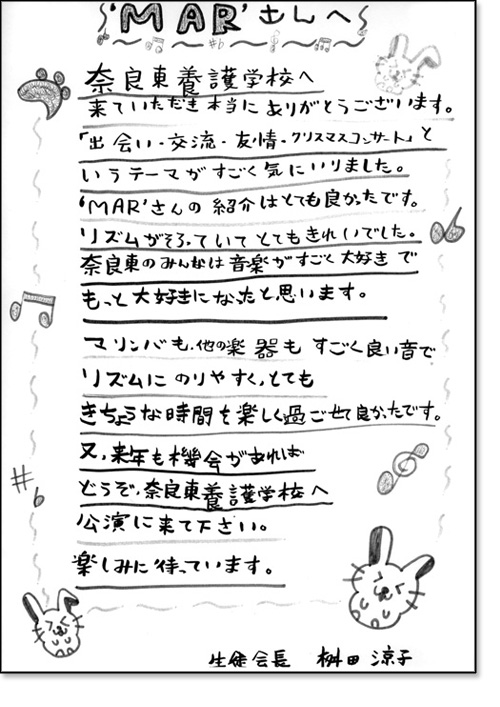 'MAR'さんへ
奈良東養護学校へ
来ていただき本当にありがとうございます。
「出会い・交流・友情・クリスマスコンサート」と
いうテーマがすごく気にいりました。
'MAR'さんの紹介はとても良かったです。
リズムがそろっていてとてもきれいでした。
奈良東のみんなは音楽がすごく大好きで
もっと大好きになったと思います。
マリンバも、他の楽器もすごく良い音で
リズムにのりやすく、とても
きちょうな時間を楽しく過ごせて良かったです。
又、来年も機会があれば
どうぞ、奈良東養護学校へ
公演に来て下さい。
楽しみに待っています。
生徒会長 桝田涼子